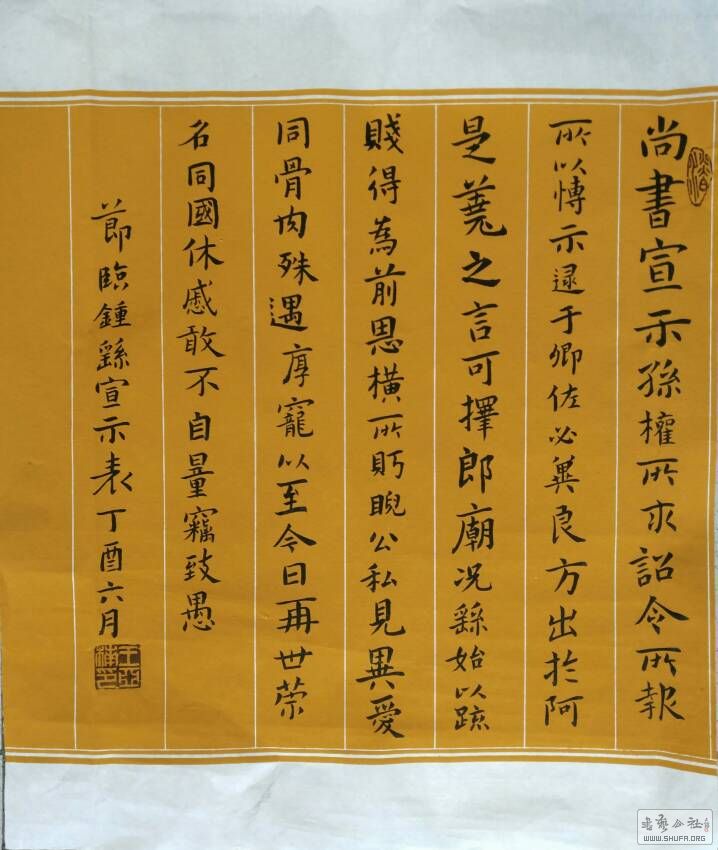 尚書宣示孫權所求詔令所報
所以博示逮于卿佐必冀良方出於阿
是蒭之言可擇郎廟況繇始以疏
賤得為前恩橫所眄睨公私見異愛
同骨肉殊遇厚寵以至今日再世荣
名同國休慼敢不自量竊致愚
節臨鍾繇宣示表丁酉六月
書藝公社
WWW.SHUFA.ORG